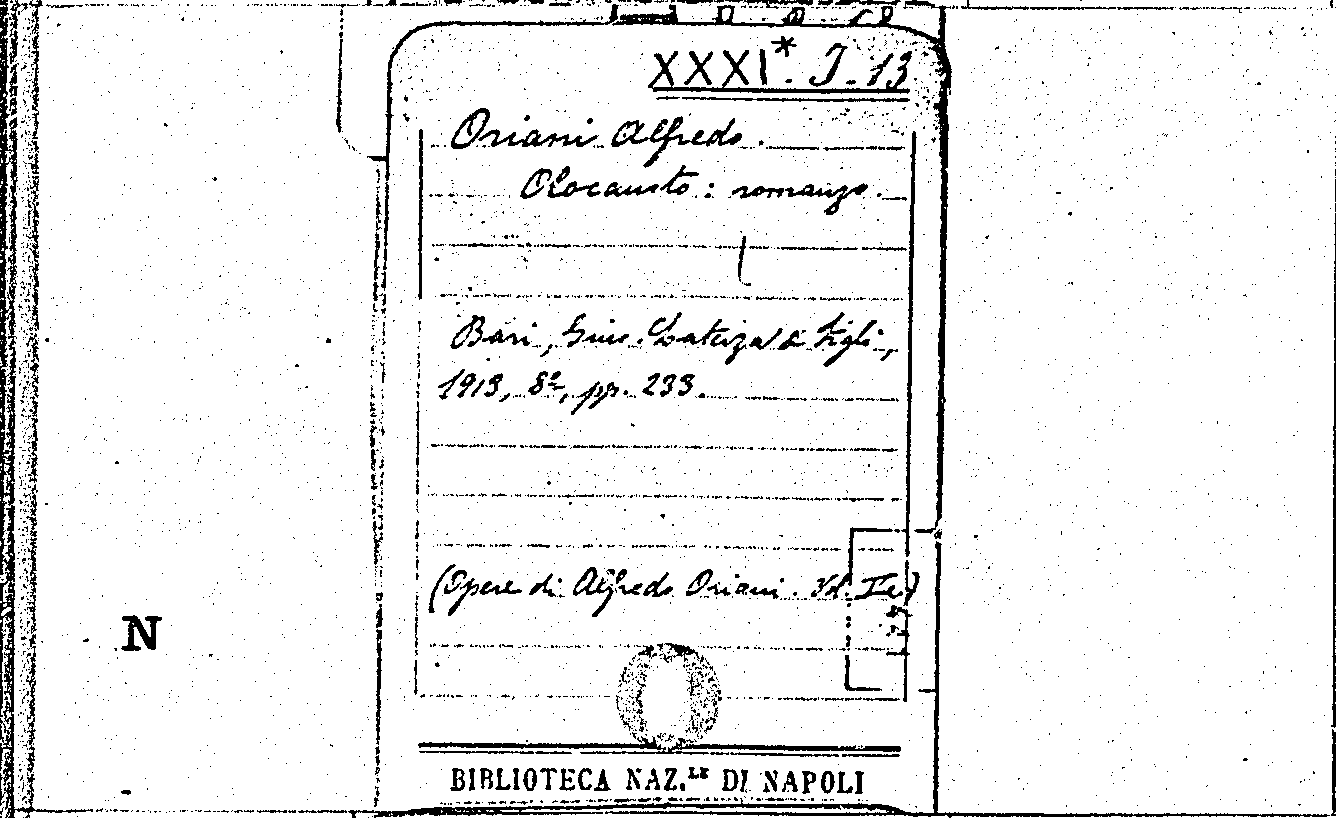 XXXI*. J. 13
Oriani Alfredo.
Olocausto: romanzo.
Bari, Gius. Laterza & figli,
1913, 8º, pp. 233.
(Opere di Alfredo Oriani. Vol. Iº.)
N
BIBLIOTECA NAZ.LE DI NAPOLI